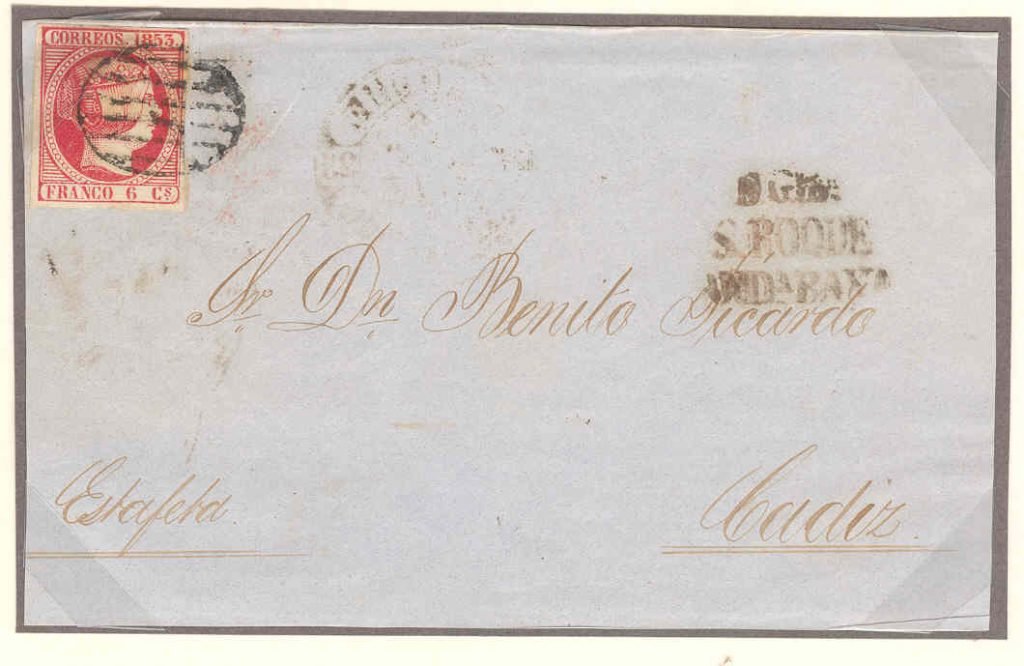 CORREOS 1853
FRANCO 6 Cs
S. ROQUE
ANDA BAXA
Sr. Dn. Benito Picardo
Estafeta.
Cadiz.